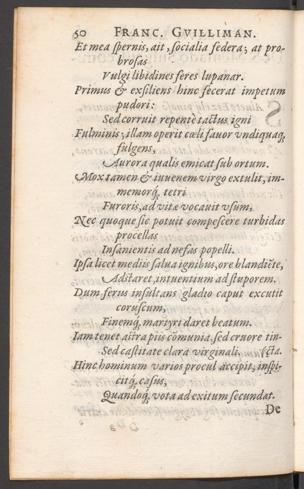 60 FRANC. GVILLIMAN.
Et mea spernis, ait, socialia federa; at pro-
brosas
Vulgi libidines feres lupanar.
Primus & exsiliens hinc fecerat impetum
pudori:
Sed corruit repentè tactus igni
Fulminis; illam operit cœli fauor vndiquaq;
fulgens,
Aurora qualis emicat sub ortum.
Mox tamen & iuuenem virgo extulit, im-
memorq; tetri
Furoris, ad vitæ vocauit vsum.
Nec quoque sic potuit compescere turbidas
procellas
Insanientis ad nefas popelli.
Ipsa licet mediis salua ignibus, ore blandiẽte,
Adstaret, intuentium ad stuporem.
Dum ferus insultans gladio caput excutit
coruscum,
Finemq́; martyri daret beatum.
Iam tenet astra piis comunia, sed cruore tin-
Sed castitate clara virginali. cta.
Hinc hominum varios procul accipit, inspi-
citq́; casus,
Quandoq́; vota ad exitum secundat.
De